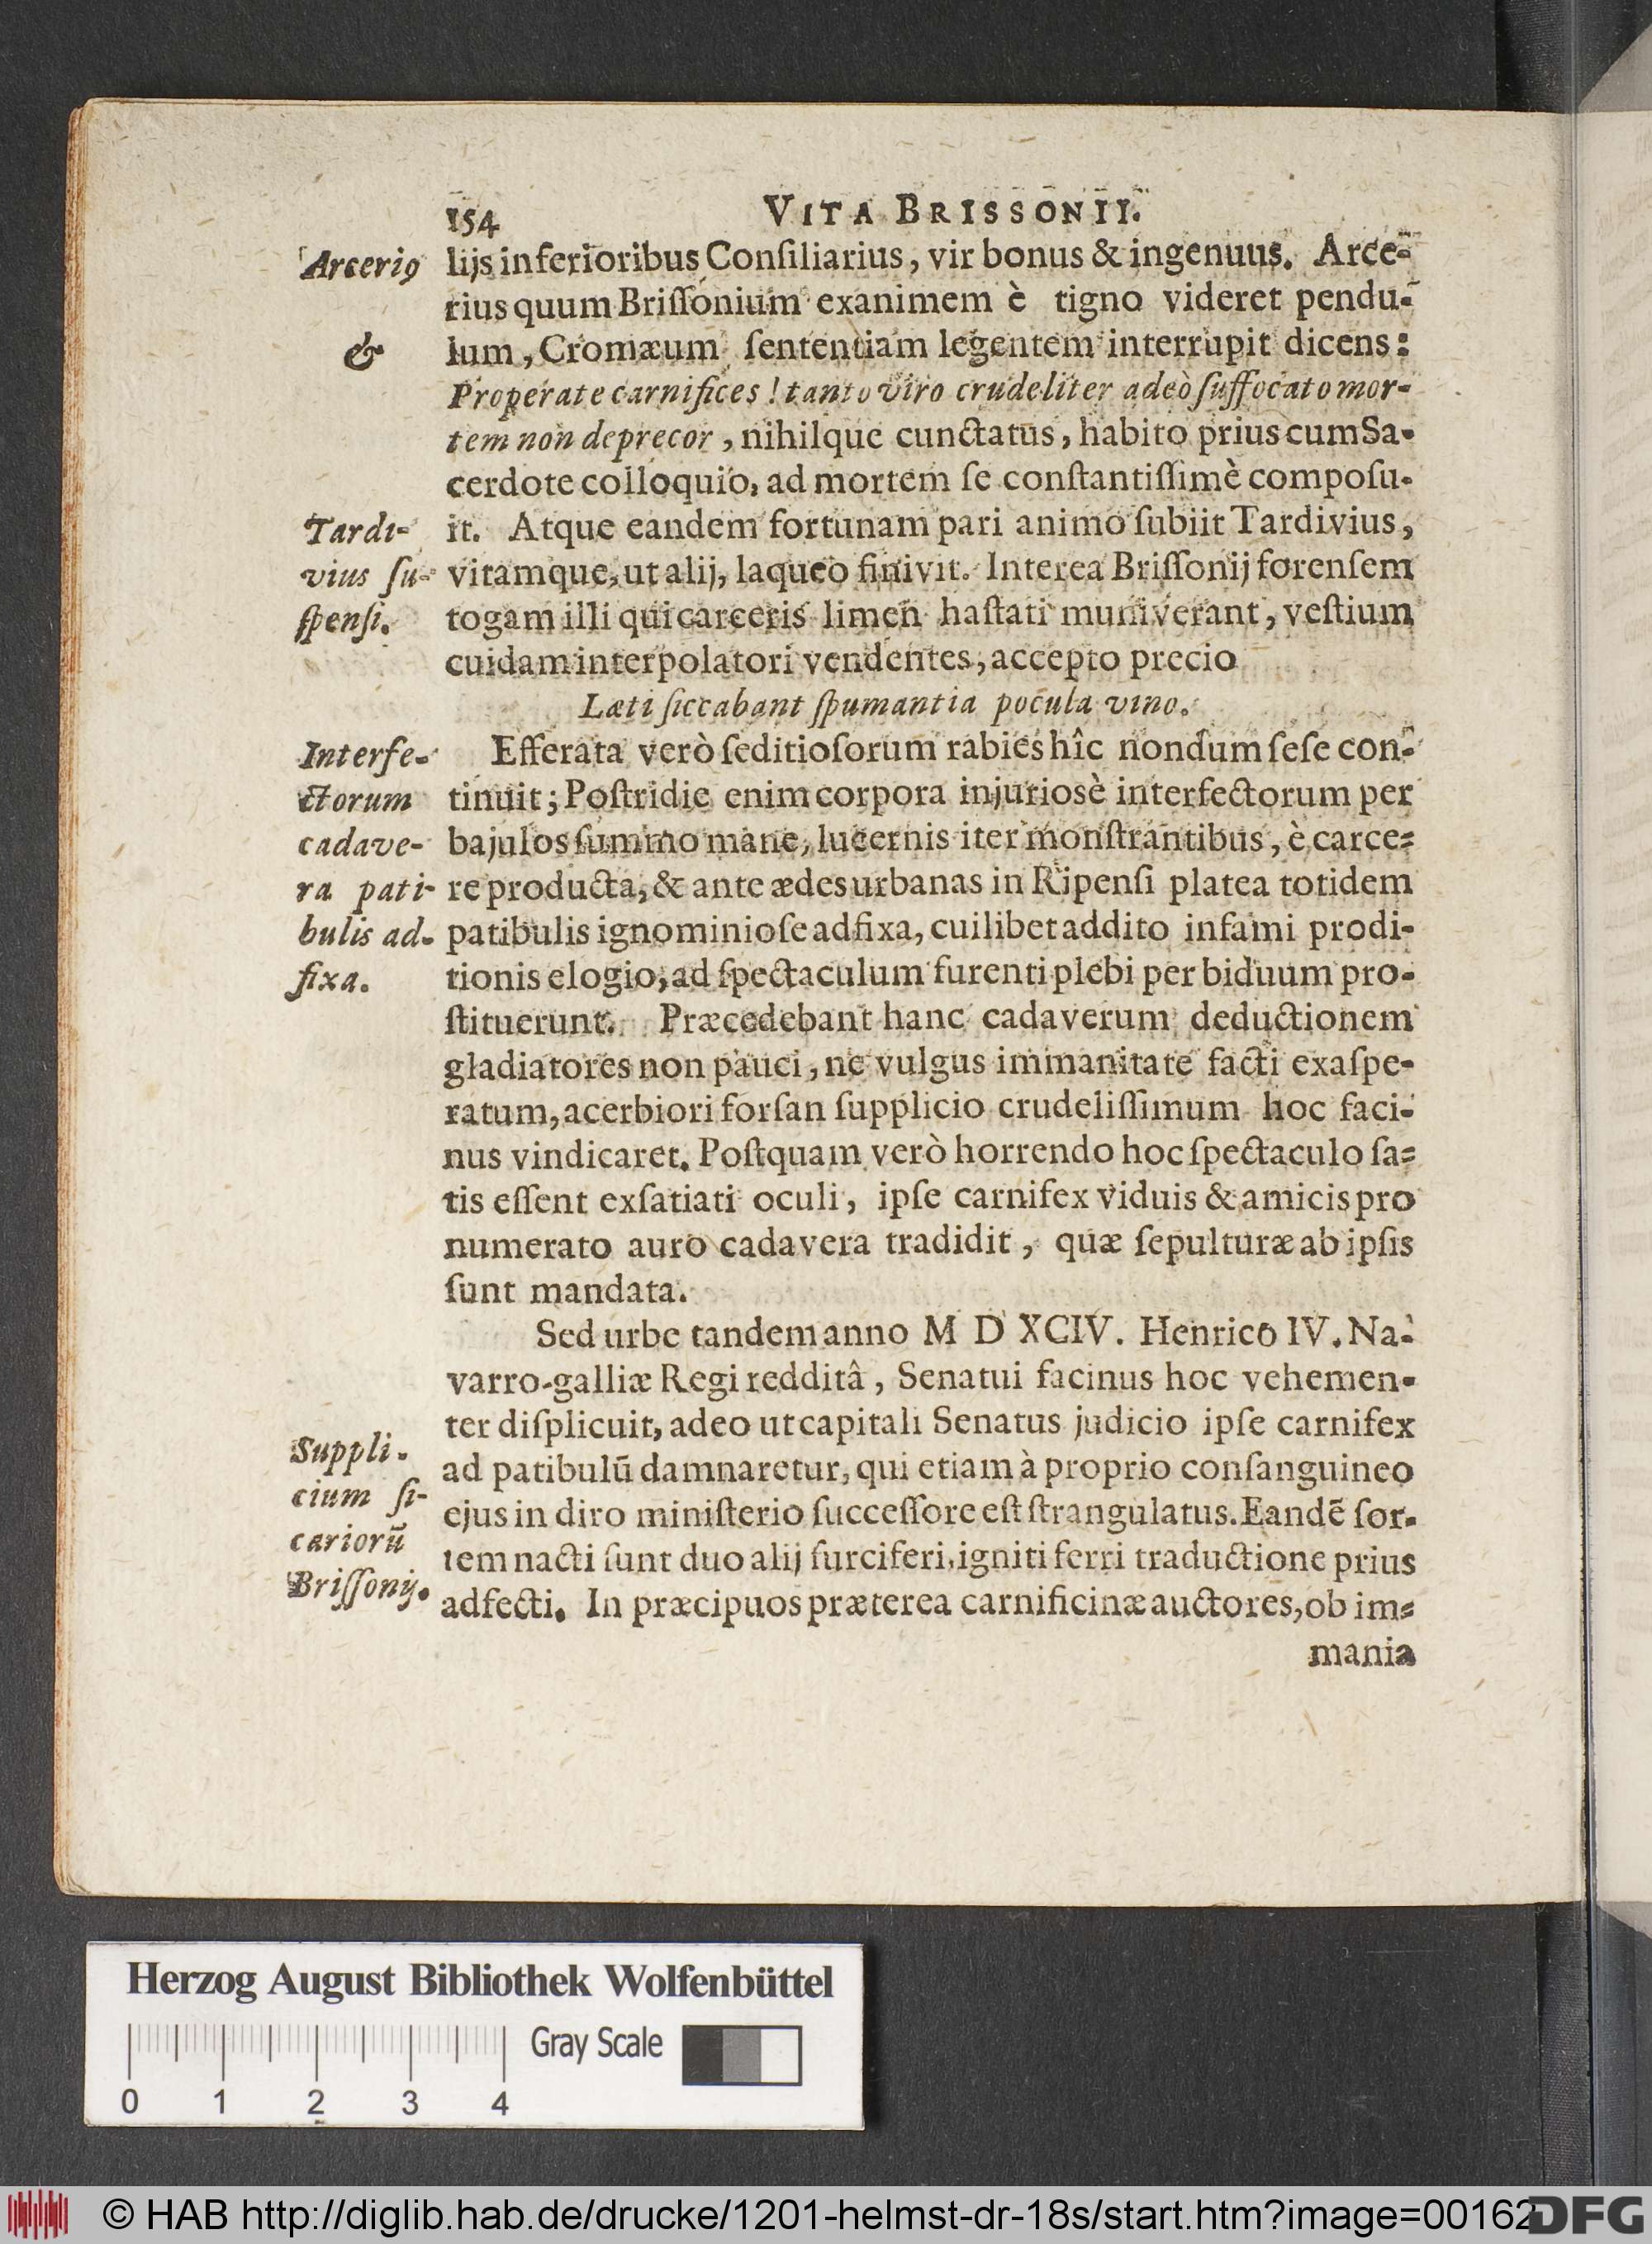 154 VITA BRISSONII.
Arceri9
&
lijs inferioribus Conſiliarius, vir bonus & ingenuus. Arce-
rius quum Briſſonium exanimem è tigno videret pendu-
lum, Cromæum ſententiam legentem interrupit dicens:
Properate carnifices! tanto viro crudeliter adeò ſuffocato mor-
tem non deprecor, nihilque cunctatus, habito prius cum Sa-
cerdote colloquio, ad mortem ſe conſtantiſſimè compoſu-
Tardi-
vius ſu-
ſpenſi.
it. Atque eandem fortunam pari animo ſubiit Tardivius,
vitamque, ut alij, laqueo finivit. Interea Briſſonij forenſem
togam illi qui carceris limen haſtati muniverant, veſtium
cuidam interpolatori vendentes, accepto precio
Læti ſiccabant ſpumantia pocula vino.
Interfe-
ctorum
cadave-
ra pati-
bulis ad-
fixa.
Efferata verò ſeditioſorum rabies hîc nondum ſeſe con-
tinuit; Poſtridie enim corpora injuriosè interfectorum per
bajulos ſummo mane, lucernis iter monſtrantibus, è carce-
re producta, & ante ædes urbanas in Ripenſi platea totidem
patibulis ignominioſe adfixa, cuilibet addito infami prodi-
tionis elogio, ad ſpectaculum furenti plebi per biduum pro-
ſtituerunt. Præcedebant hanc cadaverum deductionem
gladiatores non pauci, ne vulgus immanitate facti exaſpe-
ratum, acerbiori forſan ſupplicio crudeliſſimum hoc faci-
nus vindicaret. Poſtquam verò horrendo hoc ſpectaculo ſa-
tis eſſent exſatiati oculi, ipſe carnifex viduis & amicis pro
numerato auro cadavera tradidit, quæ ſepulturæ ab ipſis
ſunt mandata.
Sed urbe tandem anno M D XCIV. Henrico IV. Na-
varro-galliæ Regi redditâ, Senatui facinus hoc vehemen-
ter diſplicuit, adeo ut capitali Senatus judicio ipſe carnifex
Suppli-
cium ſi-
cariorū
Briſſonij.
ad patibulū damnaretur, qui etiam à proprio conſanguineo
ejus in diro miniſterio ſucceſſore eſt ſtrangulatus. Eandē ſor-
tem nacti ſunt duo alij furciferi, igniti ferri traductione prius
adfecti. In præcipuos præterea carnificinæ auctores, ob im-
mania
Herzog August Bibliothek Wolfenbüttel
Gray Scale
0 1 2 3 4
© HAB http://diglib.hab.de/drucke/1201-helmst-dr-18s/start.htm?image=00162
DFG